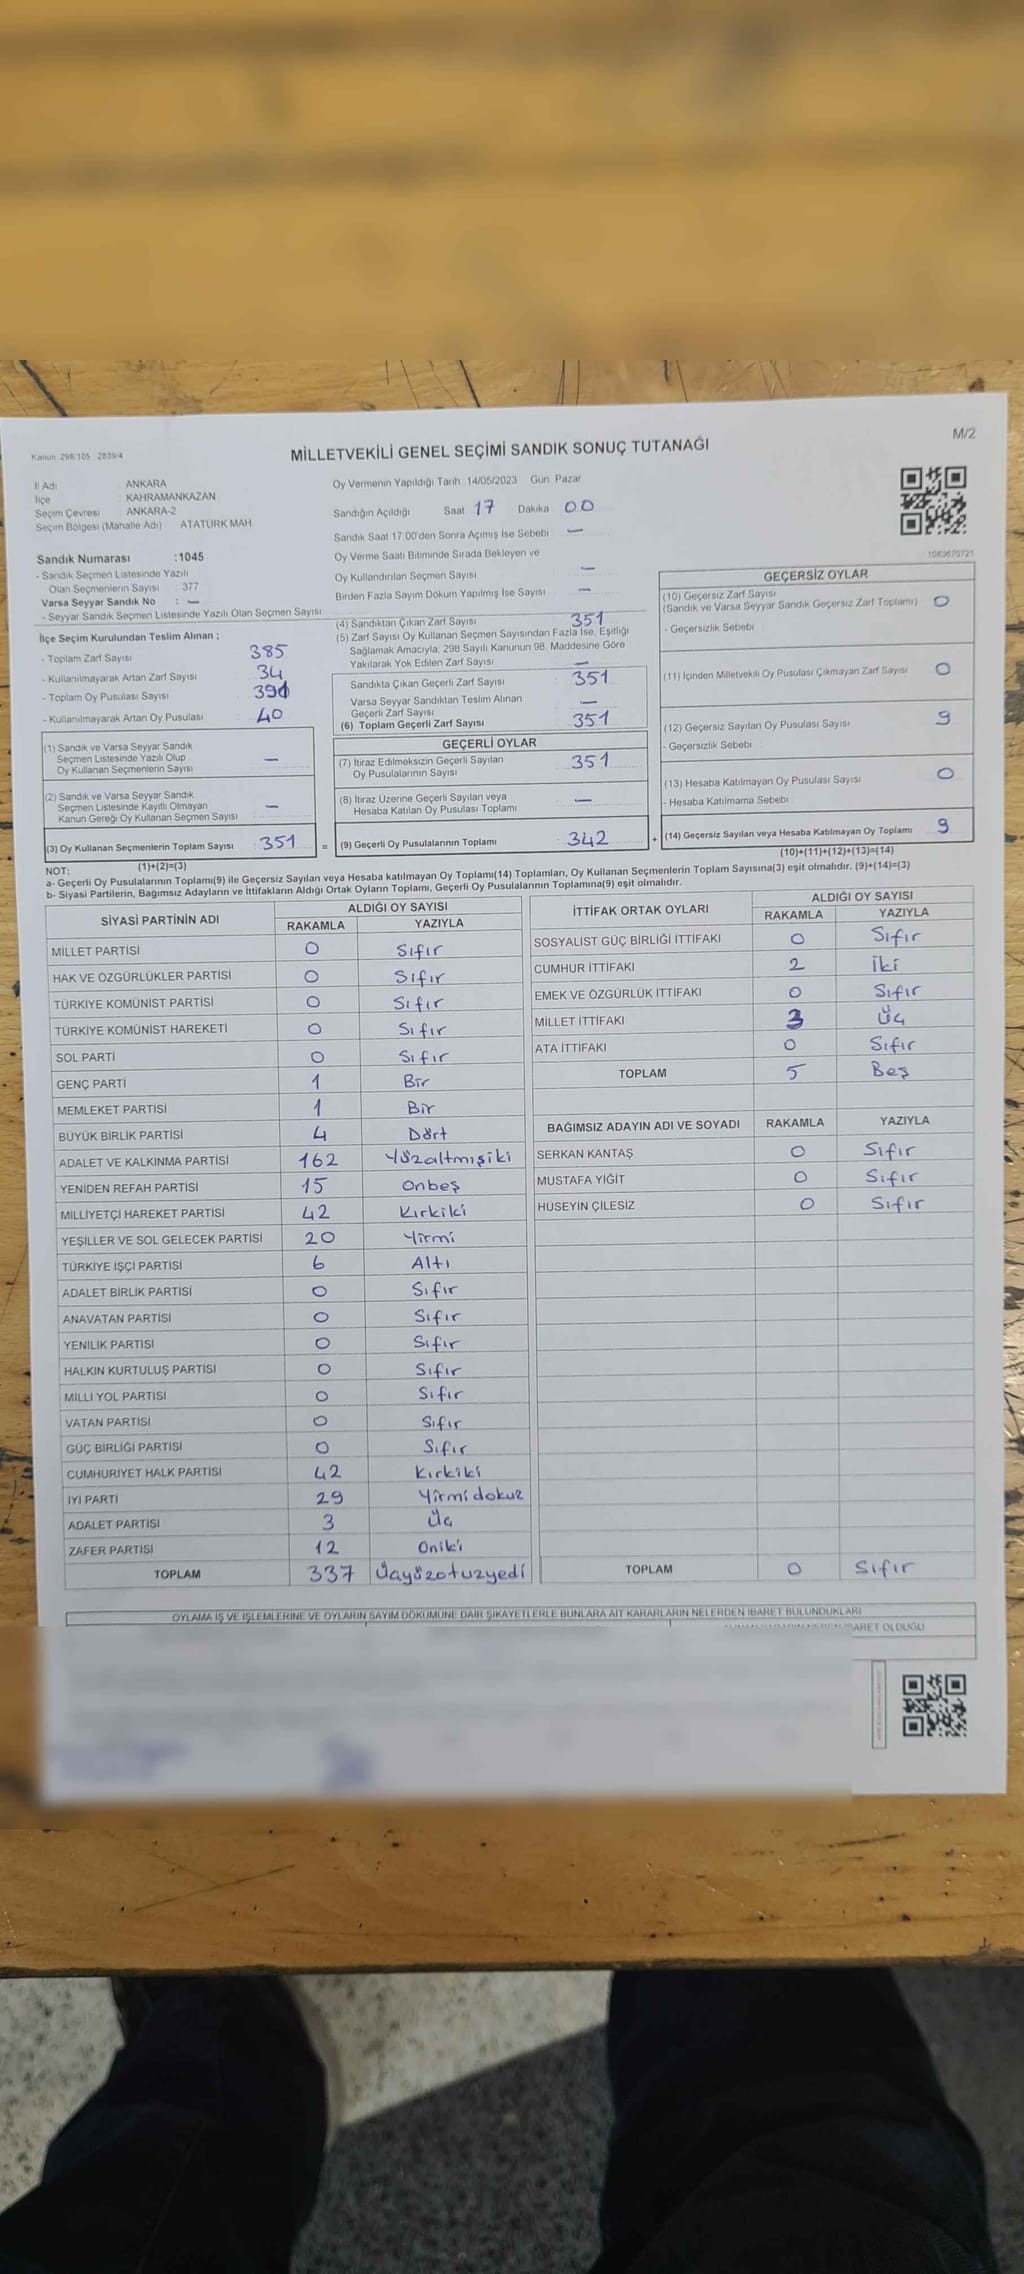 M/2
Kanun 298/105 2839/4
MİLLETVEKİLİ GENEL SEÇİMİ SANDIK SONUÇ TUTANAĞI
İl Adı ANKARA
İlçe KAHRAMANKAZAN
Seçim Çevresi ANKARA-2
Seçim Bölgesi (Mahalle Adı) ATATÜRK MAH
Sandık Numarası :1045
- Sandık Seçmen Listesinde Yazılı
Olan Seçmenlerin Sayısı : 377
Varsa Seyyar Sandık No : —
- Seyyar Sandık Seçmen Listesinde Yazılı Olan Seçmen Sayısı
İlçe Seçim Kurulundan Teslim Alınan ;
- Toplam Zarf Sayısı 385
- Kullanılmayarak Artan Zarf Sayısı 34
- Toplam Oy Pusulası Sayısı 391
- Kullanılmayarak Artan Oy Pusulası : 40
(1) Sandık ve Varsa Seyyar Sandık
Seçmen Listesinde Yazılı Olup
Oy Kullanan Seçmenlerin Sayısı —
(2) Sandık ve Varsa Seyyar Sandık
Seçmen Listesinde Kayıtlı Olmayan
Kanun Gereği Oy Kullanan Seçmen Sayısı —
(3) Oy Kullanan Seçmenlerin Toplam Sayısı : 351 =
(1)+(2)=(3)
Oy Vermenin Yapıldığı Tarih 14/05/2023 Gün Pazar
Sandığın Açıldığı Saat 17 Dakika 00
Sandık Saat 17.00'den Sonra Açımış İse Sebebi —
Oy Verme Saati Bitiminde Sırada Bekleyen ve
Oy Kullandırılan Seçmen Sayısı —
Birden Fazla Sayım Döküm Yapılmış İse Sayısı —
(4) Sandıktan Çıkan Zarf Sayısı 351
(5) Zarf Sayısı Oy Kullanan Seçmen Sayısından Fazla İse, Eşitliği
Sağlamak Amacıyla, 298 Sayılı Kanunun 98. Maddesine Göre
Yakılarak Yok Edilen Zarf Sayısı —
Sandıkta Çıkan Geçerli Zarf Sayısı 351
Varsa Seyyar Sandıktan Teslim Alınan
Geçerli Zarf Sayısı —
(6) Toplam Geçerli Zarf Sayısı 351
GEÇERLİ OYLAR
(7) İtiraz Edilmeksizin Geçerli Sayılan
Oy Pusulalarının Sayısı 351
(8) İtiraz Üzerine Geçerli Sayılan veya
Hesaba Katılan Oy Pusulası Toplamı —
(9) Geçerli Oy Pusulalarının Toplamı : 342 +
1083670721
GEÇERSİZ OYLAR
(10) Geçersiz Zarf Sayısı
(Sandık ve Varsa Seyyar Sandık Geçersiz Zarf Toplamı) 0
- Geçersizlik Sebebi
(11) İçinden Milletvekili Oy Pusulası Çıkmayan Zarf Sayısı 0
(12) Geçersiz Sayılan Oy Pusulası Sayısı 9
- Geçersizlik Sebebi
(13) Hesaba Katılmayan Oy Pusulası Sayısı 0
- Hesaba Katılmama Sebebi
(14) Geçersiz Sayılan veya Hesaba Katılmayan Oy Toplamı 9
(10)+(11)+(12)+(13)=(14)
NOT:
a- Geçerli Oy Pusulalarının Toplamı(9) ile Geçersiz Sayılan veya Hesaba katılmayan Oy Toplamı(14) Toplamları, Oy Kullanan Seçmenlerin Toplam Sayısına(3) eşit olmalıdır. (9)+(14)=(3)
b- Siyasi Partilerin, Bağımsız Adayların ve İttifakların Aldığı Ortak Oyların Toplamı, Geçerli Oy Pusulalarının Toplamına(9) eşit olmalıdır.
SİYASİ PARTİNİN ADI ALDIĞI OY SAYISI
RAKAMLA YAZIYLA
MİLLET PARTİSİ 0 Sıfır
HAK VE ÖZGÜRLÜKLER PARTİSİ 0 Sıfır
TÜRKİYE KOMÜNİST PARTİSİ 0 Sıfır
TÜRKİYE KOMÜNİST HAREKETİ 0 Sıfır
SOL PARTİ 0 Sıfır
GENÇ PARTİ 1 Bir
MEMLEKET PARTİSİ 1 Bir
BÜYÜK BİRLİK PARTİSİ 4 Dört
ADALET VE KALKINMA PARTİSİ 162 Yüzaltmışiki
YENİDEN REFAH PARTİSİ 15 Onbeş
MİLLİYETÇİ HAREKET PARTİSİ 42 Kırkiki
YEŞİLLER VE SOL GELECEK PARTİSİ 20 Yirmi
TÜRKİYE İŞÇİ PARTİSİ 6 Altı
ADALET BİRLİK PARTİSİ 0 Sıfır
ANAVATAN PARTİSİ 0 Sıfır
YENİLİK PARTİSİ 0 Sıfır
HALKIN KURTULUŞ PARTİSİ 0 Sıfır
MİLLİ YOL PARTİSİ 0 Sıfır
VATAN PARTİSİ 0 Sıfır
GÜÇ BİRLİĞİ PARTİSİ 0 Sıfır
CUMHURİYET HALK PARTİSİ 42 Kırkiki
İYİ PARTİ 29 Yirmidokuz
ADALET PARTİSİ 3 Üç
ZAFER PARTİSİ 12 Oniki
TOPLAM 337 Üçyüzotuzyedi
İTTİFAK ORTAK OYLARI ALDIĞI OY SAYISI
RAKAMLA YAZIYLA
SOSYALİST GÜÇ BİRLİĞİ İTTİFAKI 0 Sıfır
CUMHUR İTTİFAKI 2 İki
EMEK VE ÖZGÜRLÜK İTTİFAKI 0 Sıfır
MİLLET İTTİFAKI 3 Üç
ATA İTTİFAKI 0 Sıfır
TOPLAM 5 Beş
BAĞIMSIZ ADAYIN ADI VE SOYADI RAKAMLA YAZIYLA
SERKAN KANTAŞ 0 Sıfır
MUSTAFA YİĞİT 0 Sıfır
HÜSEYİN ÇİLESİZ 0 Sıfır
TOPLAM 0 Sıfır
OYLAMA İŞ VE İŞLEMLERİNE VE OYLARIN SAYIM DÖKÜMÜNE DAİR ŞİKAYETLERLE BUNLARA AİT KARARLARIN NELERDEN İBARET BULUNDUKLARI
İBARET OLDUĞU